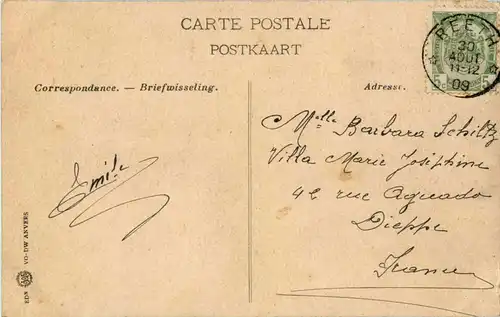 CARTE POSTALE
POSTKAART
REETH
30
AOUT
11-12
09
5c 5c
Correspondance. — Briefwisseling.
Adresse.
Melle Barbara Schiltz
Villa Marie Joséphine
42 rue Aguado
Dieppe
France
Emile
EDN VO-DW ANVERS